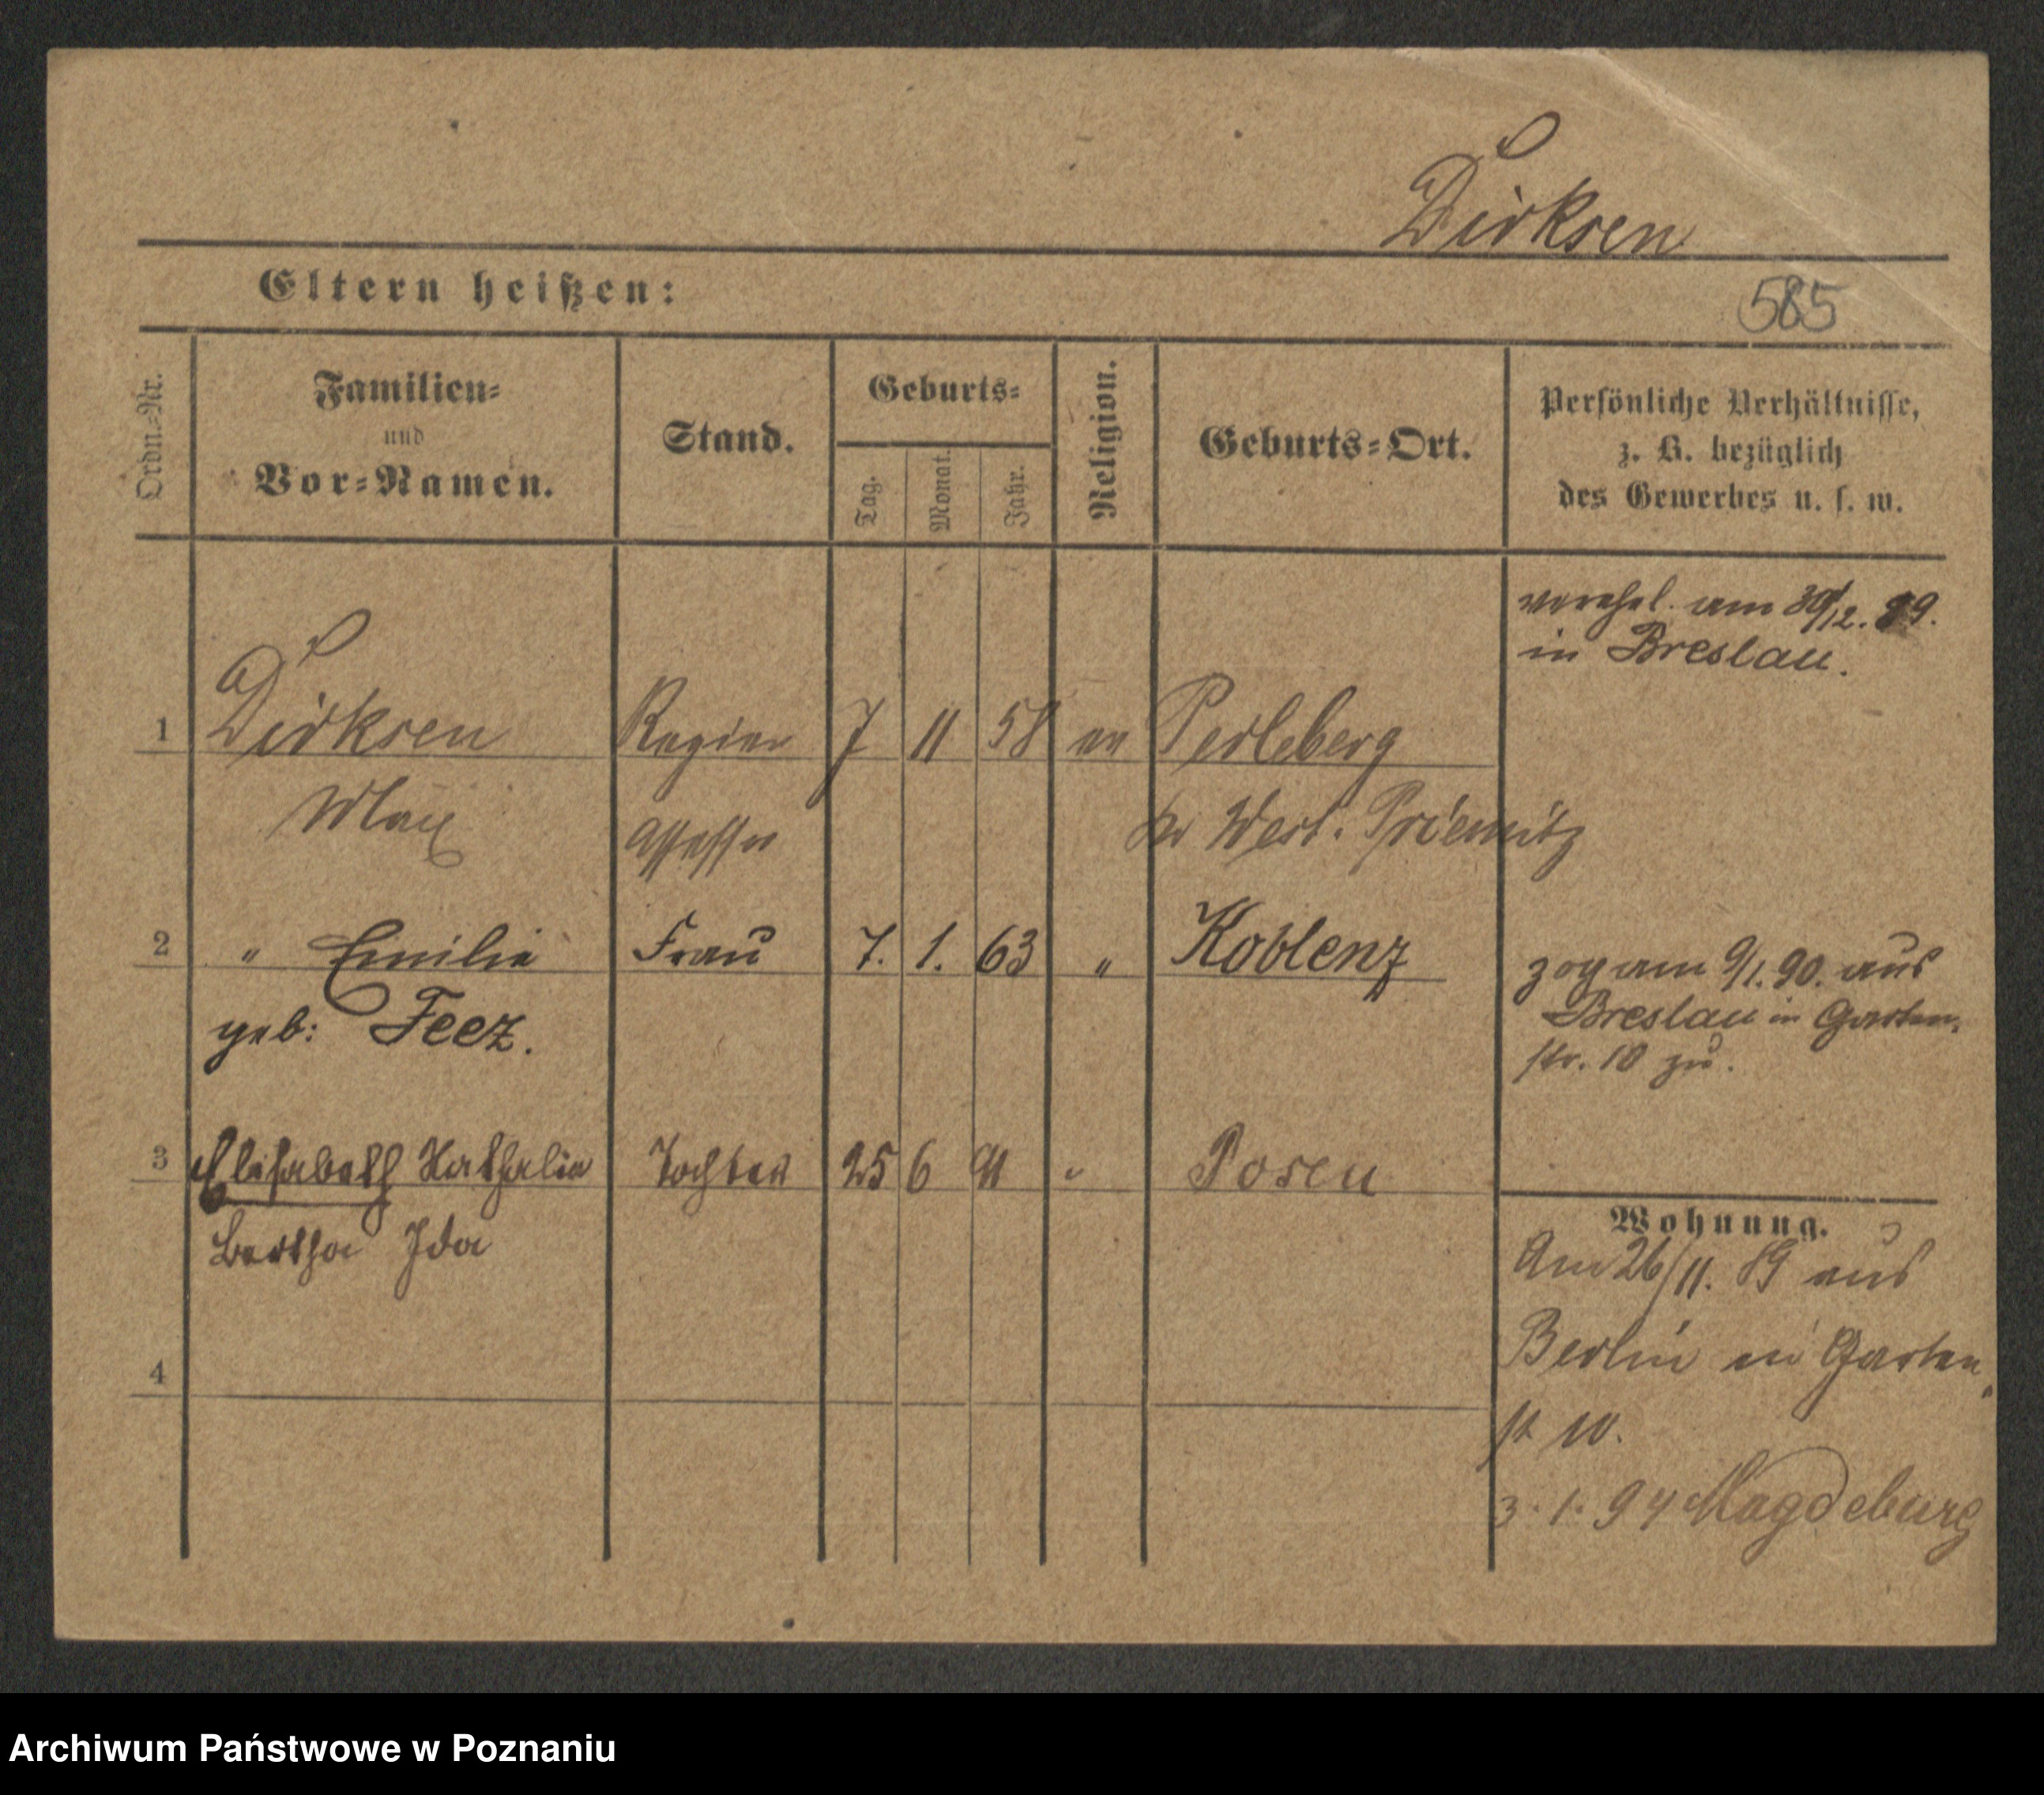 Dirksen
Eltern heißen:
585
Ordn.-Nr.
Familien-
und
Vor-Namen.
Stand.
Geburts-
Tag.
Monat.
Jahr.
Religion.
Geburts-Ort.
Persönliche Verhältnisse,
z. B. bezüglich
des Gewerbes u. s. w.
verehel. am 30/12. 89.
in Breslau.
1 Dirksen Regier 7 11 58 ev Perleberg
Max Assessor Kr West. Priemitz
2 " Emilie Frau 7. 1. 63 " Koblenz
geb: Feez.
zog am 9/1. 90. aus
Breslau in Garten-
str. 10 zu.
3 Elisabeth Nathalie Tochter 25 6 91 " Posen
Bertha Ida
Wohnung.
Am 26/11. 89 aus
Berlin in Garten
st 10.
4
3. 1. 94 Magdeburg
Archiwum Państwowe w Poznaniu